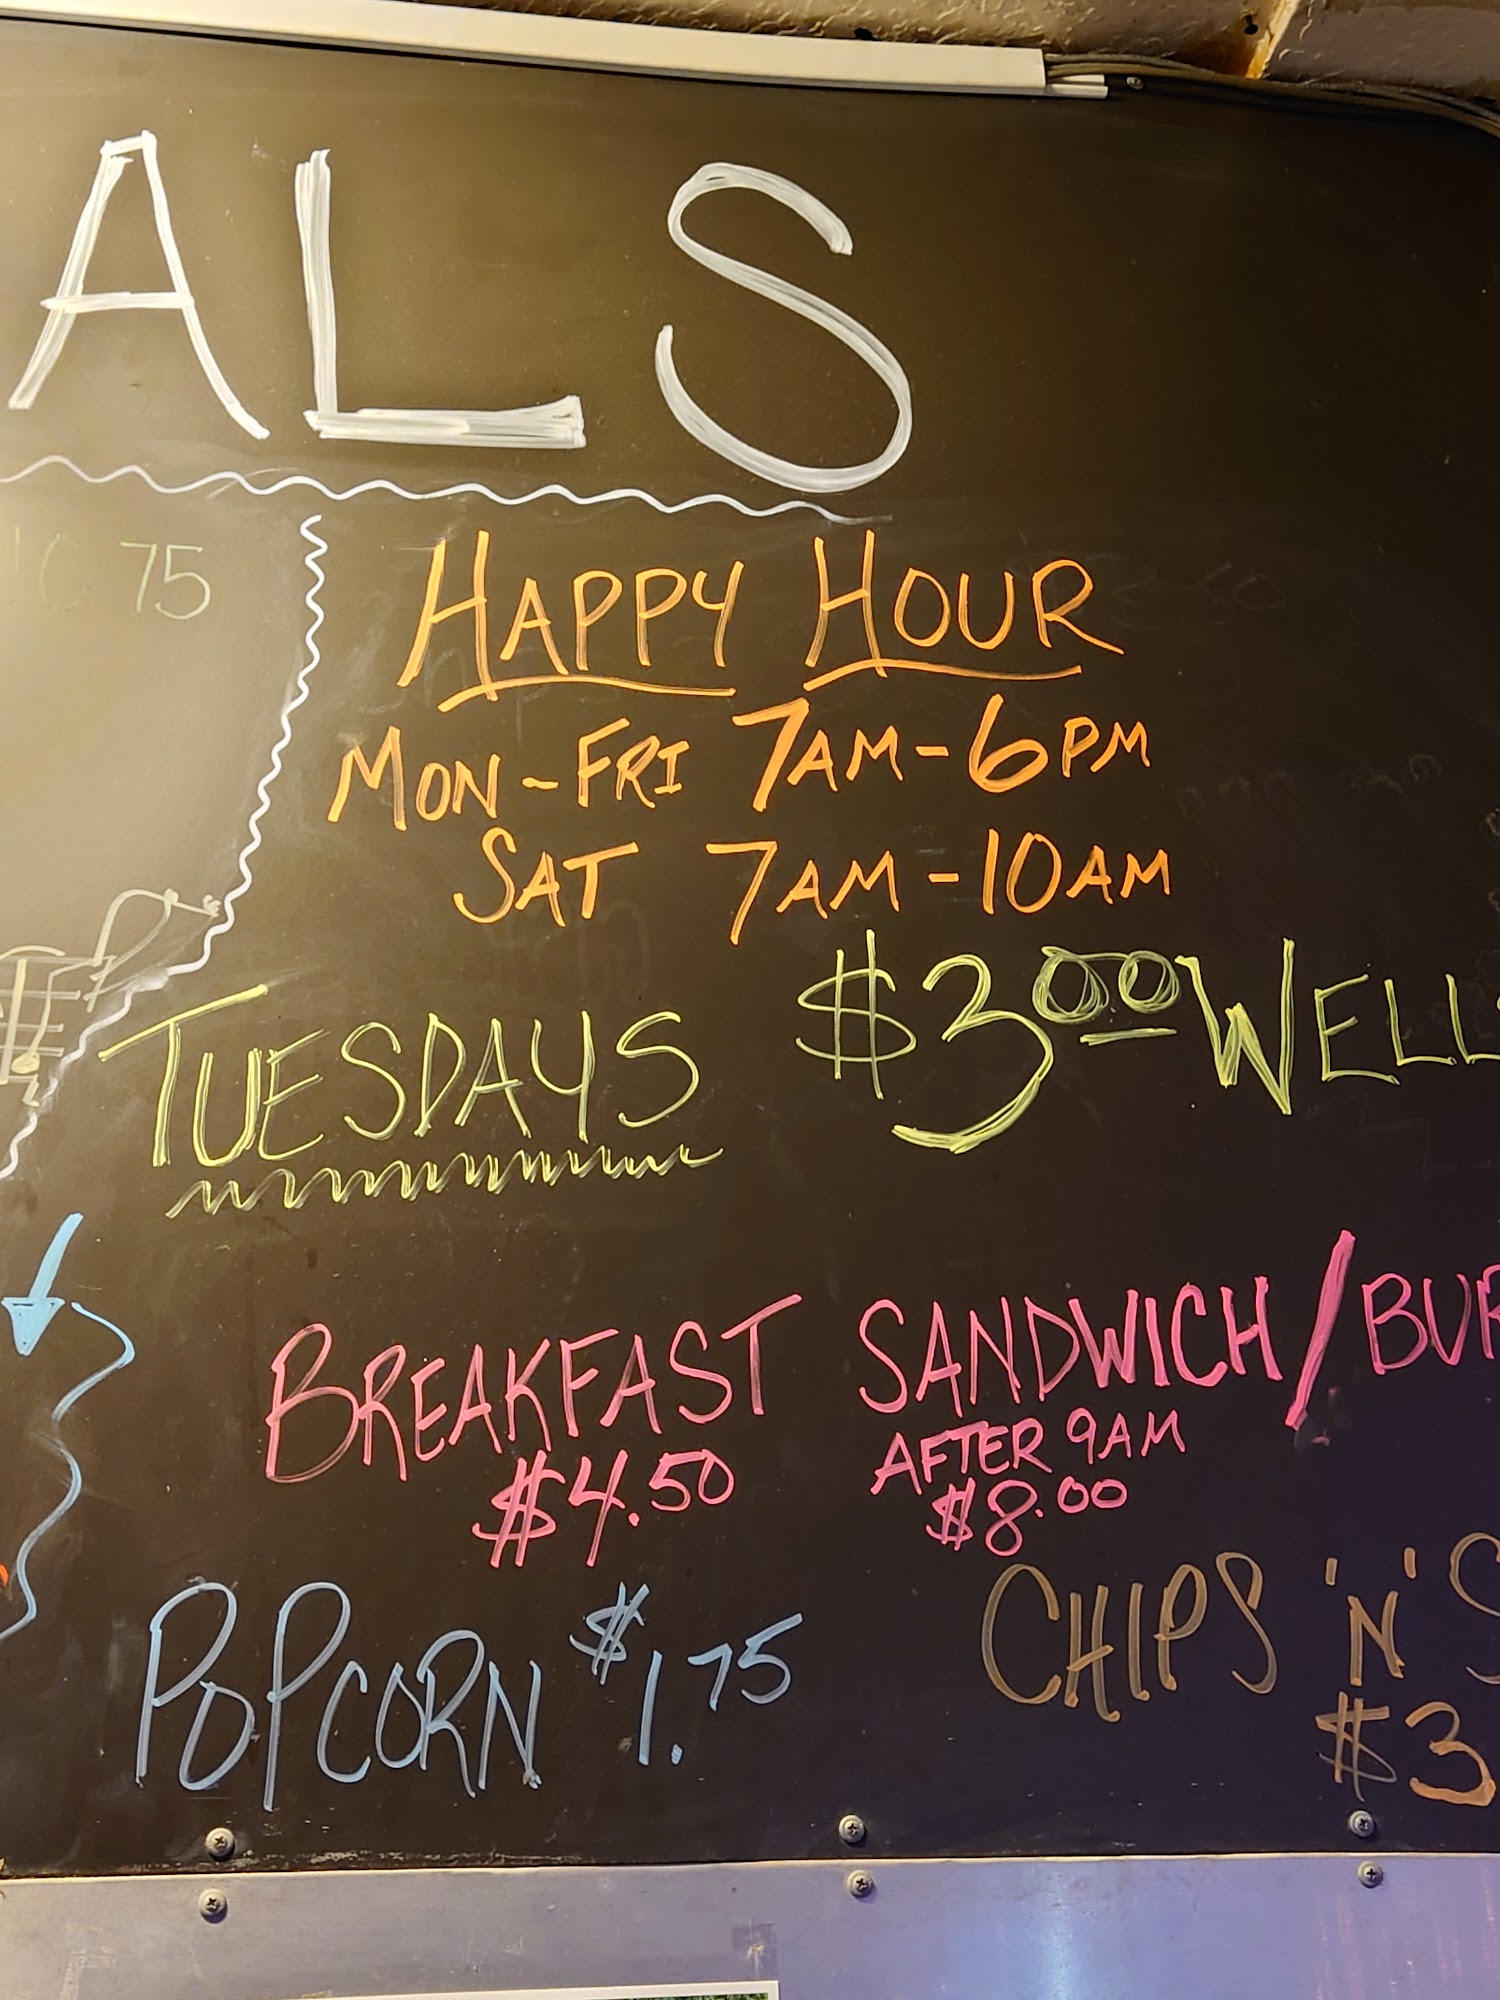 ALS
75
HAPPY HOUR
MON-FRI 7AM-6PM
SAT 7AM-10AM
TUESDAYS $3.00 WELLS
BREAKFAST SANDWICH/BUR
$4.50 AFTER 9AM
$8.00
POPCORN $1.75
CHIPS 'N' S
$3